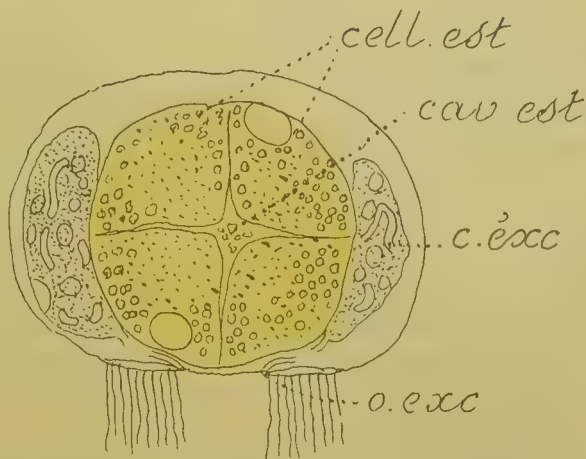 cell. est
cav est
c. éxc
o. exc